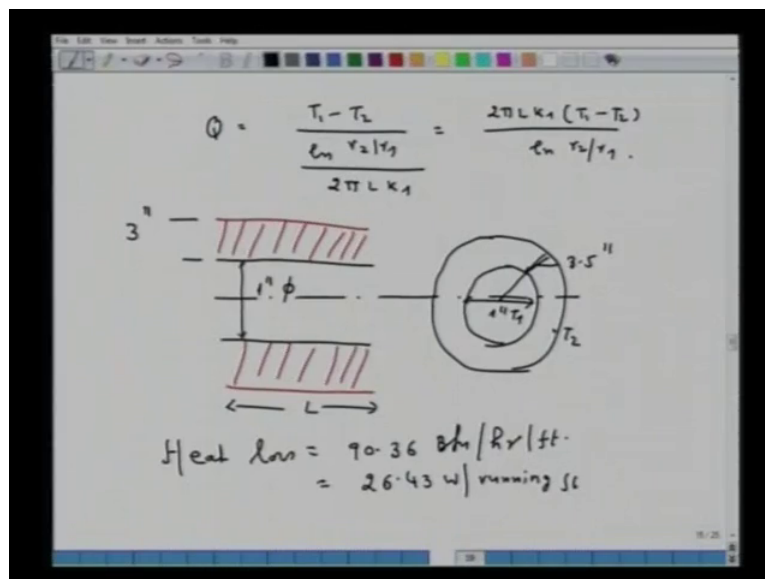 File Edit View Insert Actions Tools Help
Q = T₁ - T₂ / (ln r₂/r₁ / 2πLK₁) = 2πLK₁(T₁ - T₂) / ln r₂/r₁.
3"
1" φ
3.5"
1" T₁
T₂
L
Heat loss = 90.36 Btu/hr/ft.
= 26.43 W/running ft